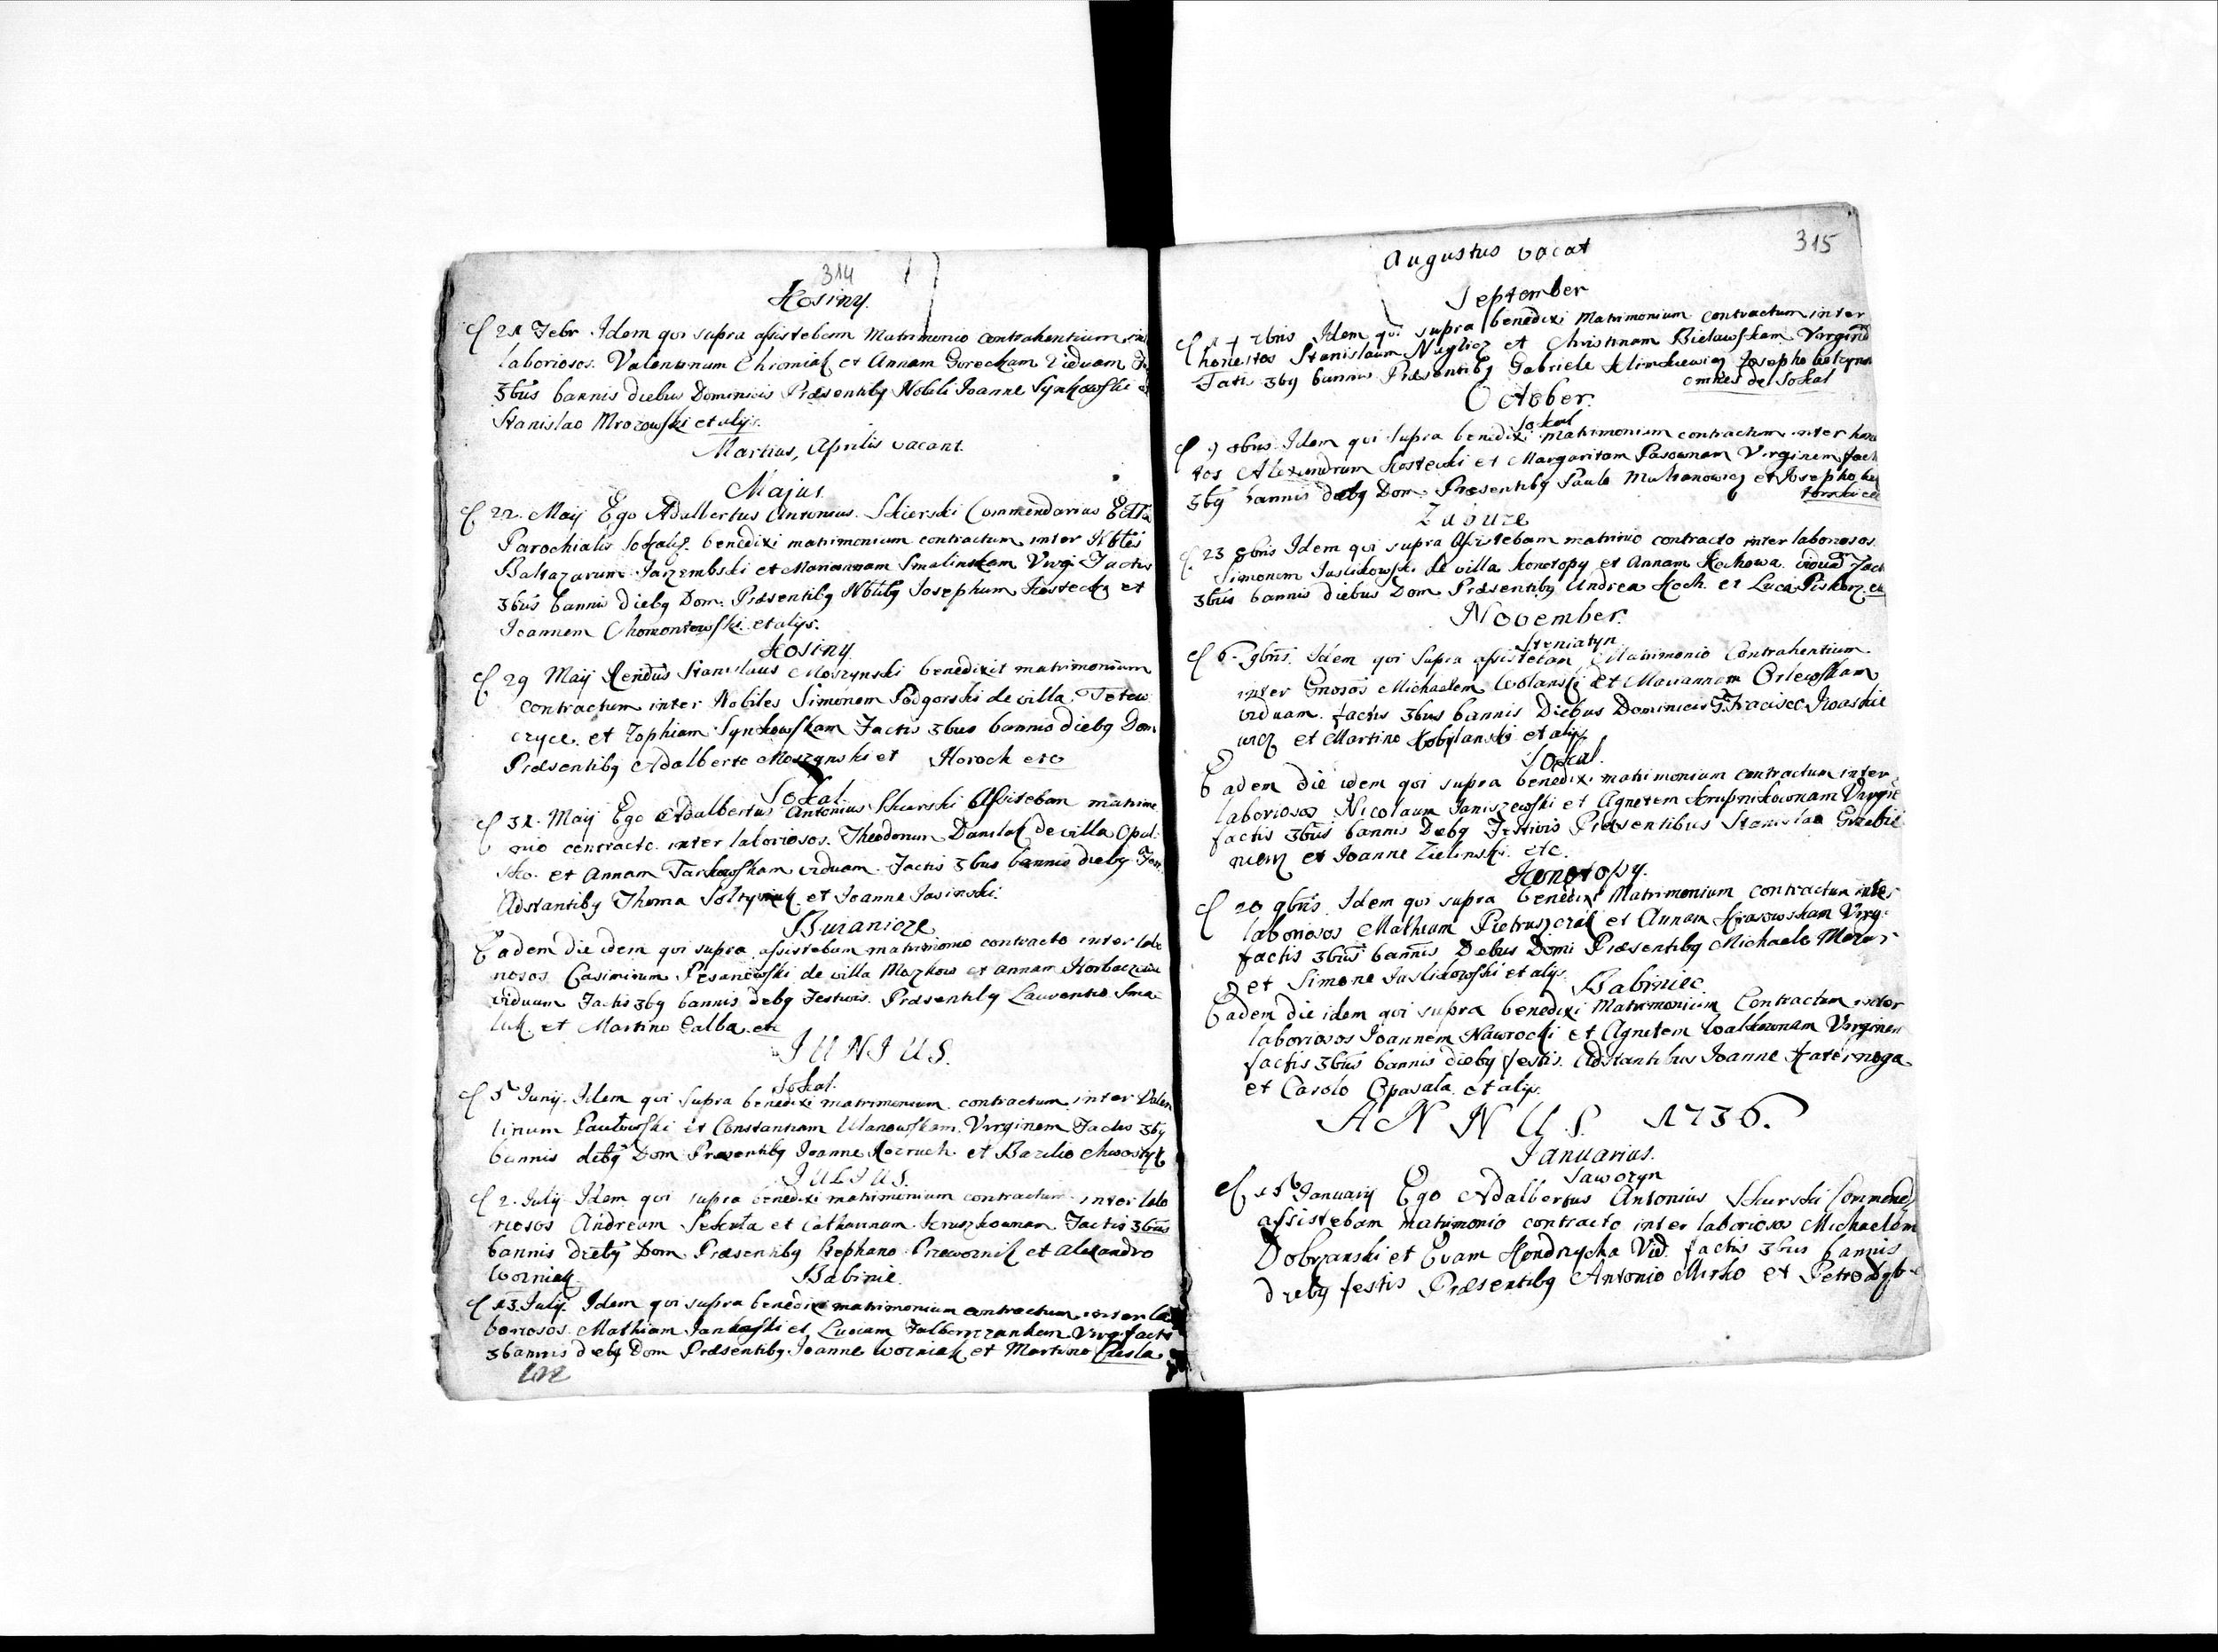 314
Kosiny.
21 Febr Idem qui supra assistebam Matrimonio contrahentium
laboriosos Valentinum Chromiak et Annam Goreckam Viduam
3bus bannis diebus Dominicis Præsentibg Nobili Joanne Synkowski
Stanislao Mrozowski et alijs.
Martius, Aprilis vacant.
Majus
22. Maij Ego Adalbertus Antonius Skierski Commendarius
Parochialis benedixi matrimonium contractum inter Nbles
Baltazarum Jarzembski et Mariannam Smalinskam Virg: Factis
3bus bannis diebg Dom: Præsentibg Josephum Kostecky et
Joannem Chomontowski et alijs.
Kosiny
29 Maij Rendus Stanislaus Moszynski benedixit matrimonium
contractum inter Nobiles Simonem Podgorski de villa Tetew
czyce et Zophiam Synkowskam Factis 3bus bannis diebg Dom
Præsentibg Adalberto Moszynski et Horoch etc
Sokal
31. Maij Ego Adalbertus Antonius Skierski Assisteban matrimo
nio contracto inter laboriosos Theodorum Danilak de villa Opul
sko et Annam Tarkowskam viduam. Factis 3bus bannis diebg
Adstantibg Thoma Soltysiak et Joanne Jasinski.
Buianicze
Eadem die idem qui supra assistebam matrimonio contracto inter labo
riosos Casimirum Pesanowski de villa Mozkow et annam
viduam Factis 3bg bannis debg Festivis. Præsentibg Laurentio Sma
luk et Martino Galba etc
JUNIUS.
Sokal.
5 Junij Idem qui supra benedixi matrimonium contractum inter Valen
tinum Pawlowski et Constantiam Ulanowskam Virginem Factis 3bg
bannis diebg Dom Præsentibg Joanne et Bazilio Chwostyk
JULIUS.
2. Julij Idem qui supra benedixi matrimonium contractum inter labo
riosos Andream Sekuta et Catharinam Kruszkownan Factis 3bus
bannis diebg Dom Præsentibg Stephano Przewoznik et Alexandro
Wozniak.
Babinie.
13. Julij Idem qui supra benedixi matrimonium contractum inter la
boriosos Mathiam Jankowski et Luciam Virg. factis
3 bannis diebg Dom Præsentibg Joanne Wozniak et Martino
315
Augustus vacat
September
7bris Idem qui supra benedixi Matrimonium contractum inter
honestos Stanislaum Nuglicz et Christinam Bielawskam Virgine
Factis 3bg bannis Præsentibg Gabriele Klimkiewicz Josepho
omnes de Sokal
October.
Sokal
9 8bris Idem qui supra benedixi matrimonium contractum inter hones
tos Alexandrum Kostecki et Margaritam Virginem fact
3bg bannis diebg Dom: Præsentibg Paulo et Josepho
Zabuze
23 8bris Idem qui supra Assistebam matrimio contracto inter laboriosos
Simonem Juslikowski de villa Konotopy et Annam Kochowa vidua Fact
3bus bannis diebus Dom Præsentibg Andrea Koch et Luca Piskorz
November.
Steniatyn
6. 9bris. Idem qui supra Matrimonio Contrahentium
inter Gnosos Michaelem Wolanski et Mariannam Orlewskam
viduam factis 3bus bannis Diebus Dominicis Iwaskie
wicz et Martino Kobylanski et alijs
Sokal.
Eadem die idem qui supra benedixi matrimonium contractum inter
laboriosos Nicolaum Janiszewski et Agnetem Krupnikownam Virgin
factis 3bus bannis Debg Festivis Præsentibus Stanislao Grzebie
niem et Joanne Zielinski etc.
Konotopy.
20 9bris Idem qui supra benedixi Matrimonium contractum inter
laboriosos Mathiam Pietruszczak et Annam Krasowskam Virg:
factis 3bus bannis Debus Domi Præsentibg Michaele Mazur
et Simone Juslikowski et alijs.
Babiniec
Eadem die idem qui supra benedixi Matrimonium Contractum inter
laboriosos Joannem Nawrocki et Agnetem Walkownam Virginem
factis 3bus bannis diebg festis. Adstantibus Joanne Katernoga
et Carolo Opasala et alijs.
ANNUS 1736.
Januarius.
Jaworzyn
Januarij Ego Adalbertus Antonius Skierski Commend
assistebam matrimonio contracto inter laboriosos Michaelem
Dobrzanski et Evam Kondrycka Vid. factis 3bus bannis
diebg festis Præsentibg Antonio Mirko et Petro